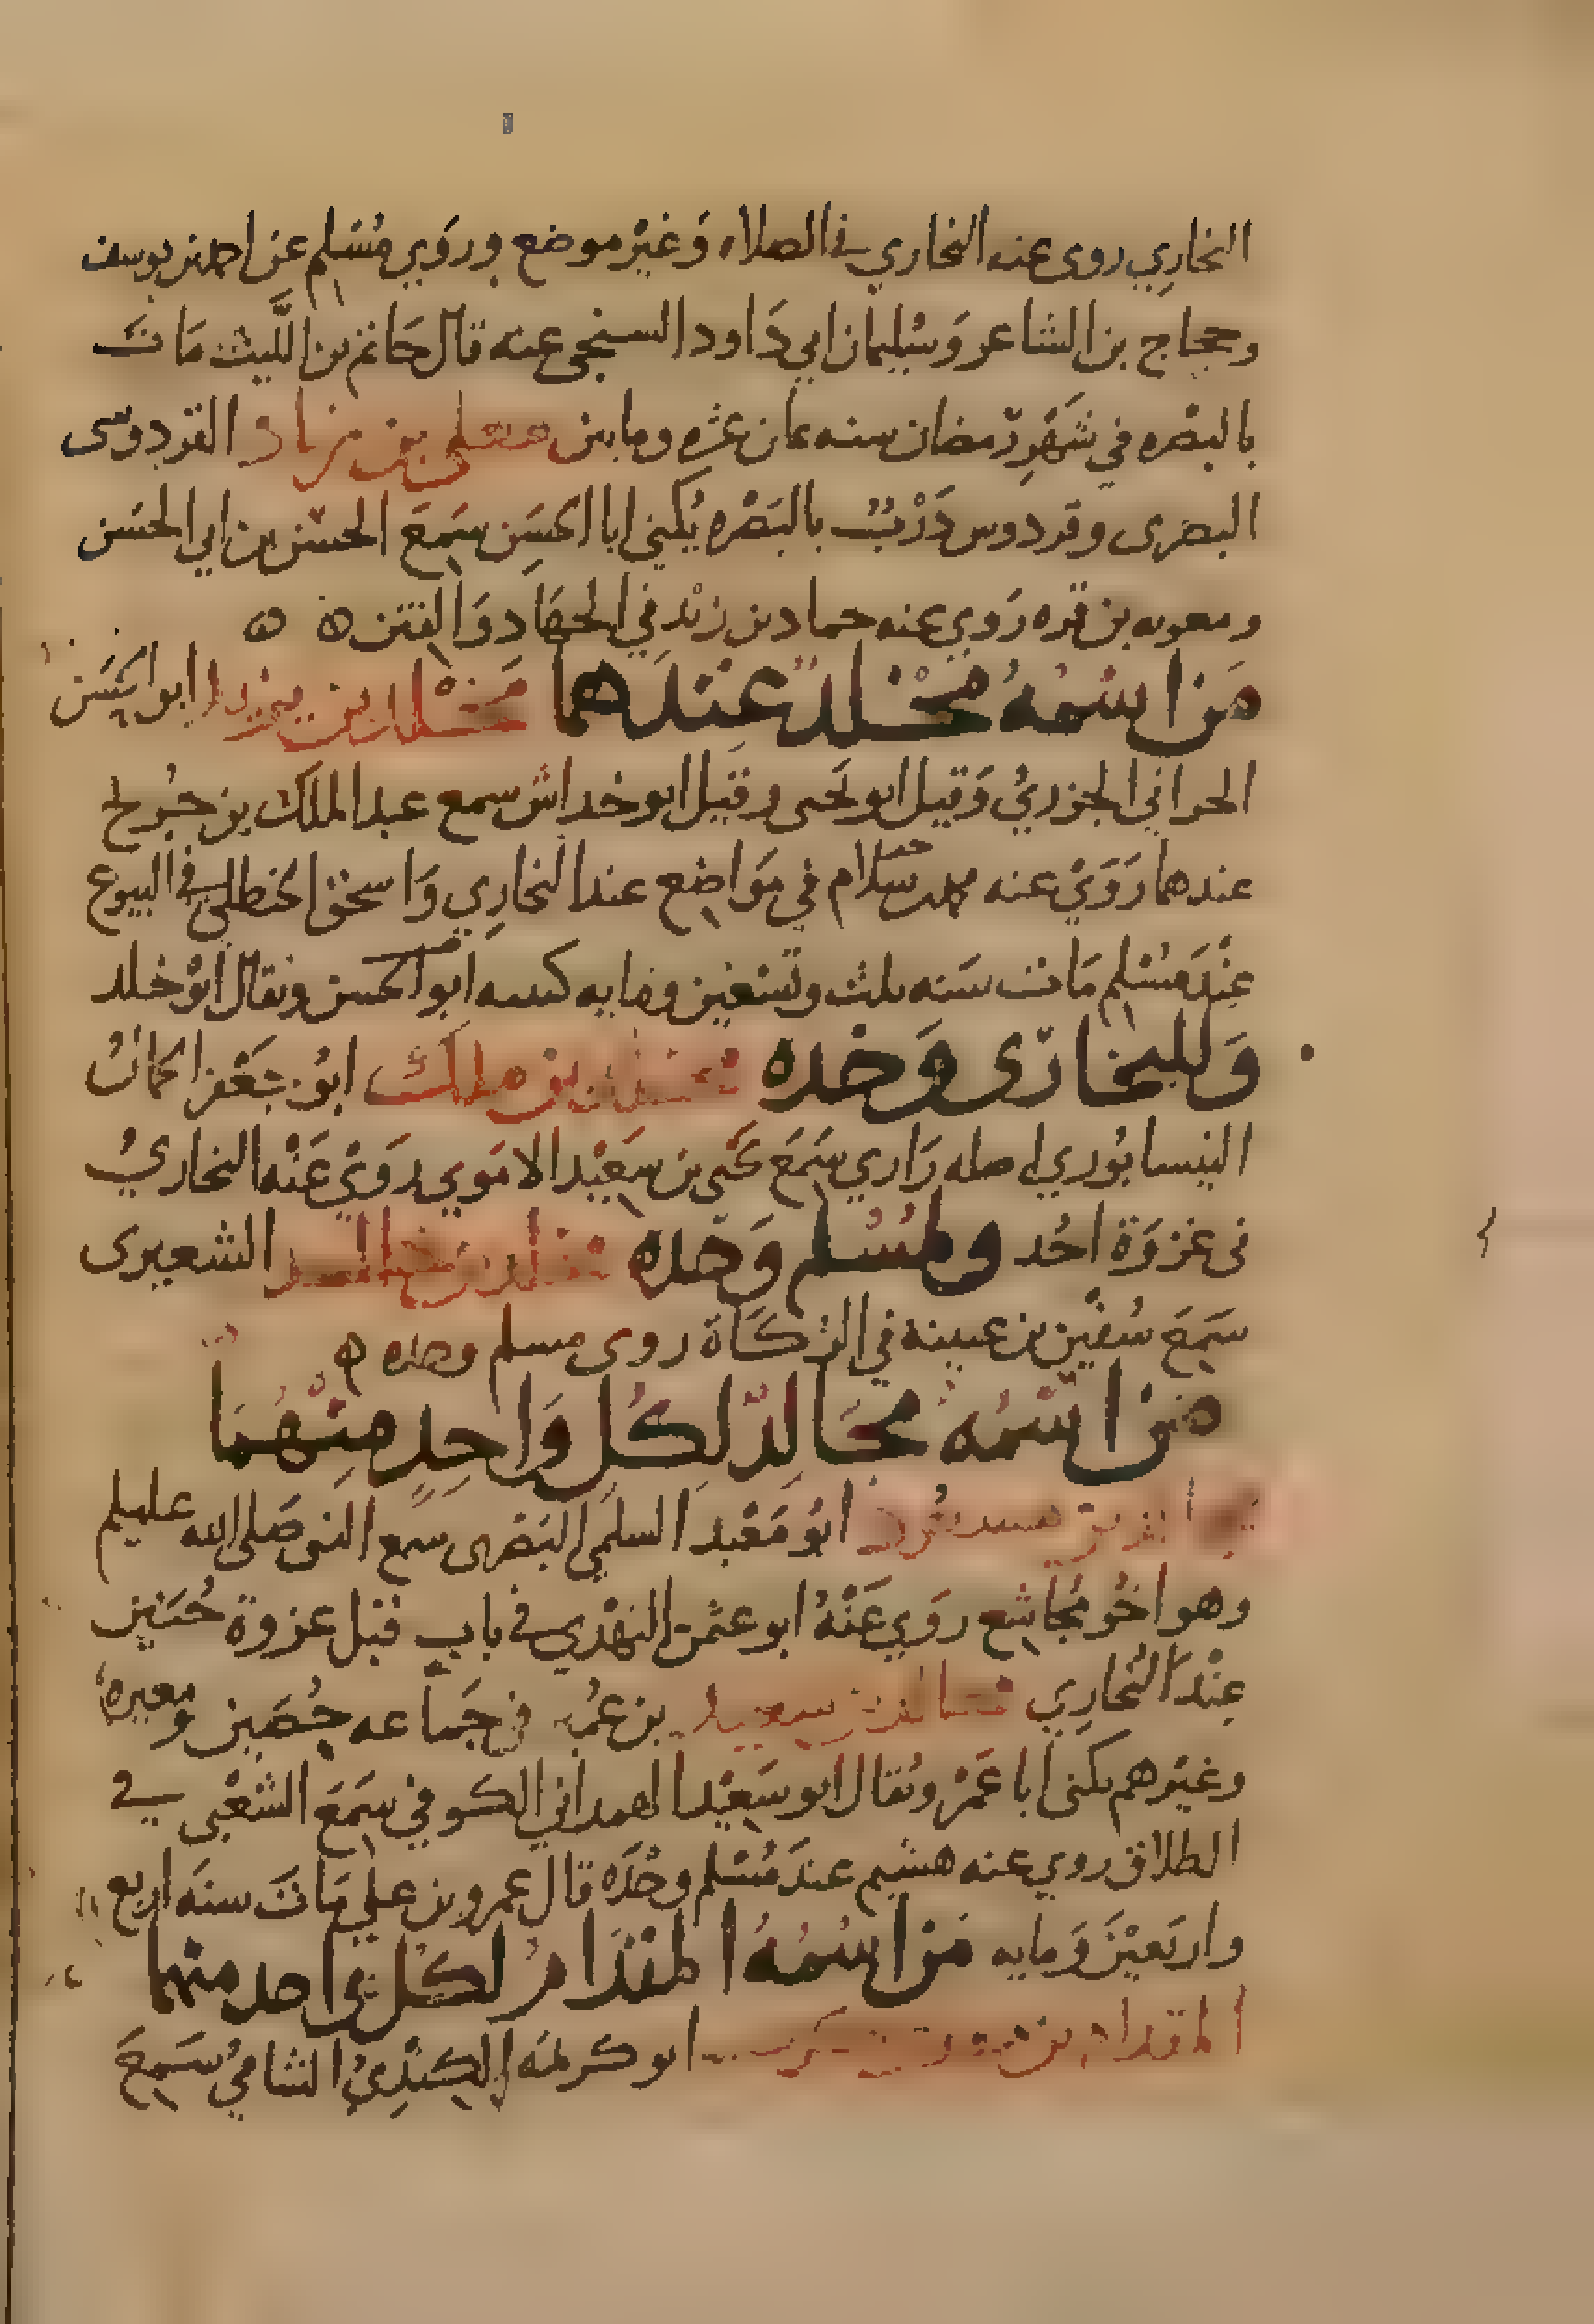 البخاري روى عنه البخاري في الصلاه وَغيْر موضع وروَي مُسْلم عن احمد بن يوسف
وحجاج بن الشاعر وَسُليمان ابي دَاود السنجى عنه قال حَاتم بن اللَّيث مَاتَ
بالبصْره في شَهْرِ رَمضان سنه ثمان عشره ومايتين معلى بن زياد القردوسى
البصرى وقردوس دَرْبٌ بالبَصْره يُكنى ابا الحسَن سَمعَ الحسَن بن ابي الحسَن
ومعويه بن قره رَوي عنه حماد بن زيْد في الجهَاد وَالفتن
مَن اسْمُهُ مَخْلدٌ عنْدَهما مَخْلد بن يزيد ابو الحسَن
الحراني الجزريُ وَقيل ابو يحَى وقيل ابو خداش سمع عبد الملك بن جُريج
عندهما رَوَيْ عنه محمد بن سَلام في مَواضِع عند البخارِي وَاسحق الحنظلي في البيوع
عِنْدَ مُسْلم مَات سَنه ثلث وتسْعين ومايه كنيته ابو الحسن ويقال ابوْ خلد
وَللبخارّى وَحْده مخلد بن ملك ابوُ جَعْفر الجمالُ
النيسابُوري اصله رَازي سَمَعَ يحَيى بن سَعيْد الامَوي رَوَيْ عَنْه البخاريُ
فى غزوَة احُد ولمُسْلم وَحْده مخلد بن خالد الشعيرى
سَمِعَ سُفْين بن عيينه في الزكَاة روى مسلم وحده
مَنْ اسْمُهُ مجَالِدٌ لكُل وَاحِدٍ مِنْهُمَا
مجالد بن مسعود ابوُ مَعْبد السلَمي البَصْرى سَمع النبى صَلى الله عليه
وهو اخُو مُجاشِع روَي عَنْهُ ابو عثمن النهْدي في باب قبل غزوة حُنَيْن
عِنْدَ البُخارِي مجالد بن سعيد بن عُمير في جَماَعه حُصَين ومغيره
وغيَرهم يكنى ابا عَمْرٍ ويُقال ابو سَعيْد الهمداني الكوفي سَمَعَ الشعْبى في
الطلاق روي عنه هشيم عندَ مُسْلم وحْدَه قال عمرو بن علي مَاتَ سنَه اربع
واربَعيْنَ وَمايه مَن اسْمُهُ المقْدَامُ لكُل وَاحد منهما
المقدام بن معدي كرب ابو كريمَه الكنْدِيُ الشاميُ سَمِعَ